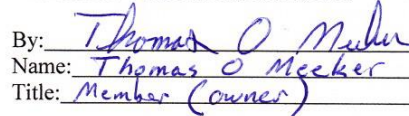 By: Thomas O Meeker
Name: Thomas O Meeker
Title: Member (owner)